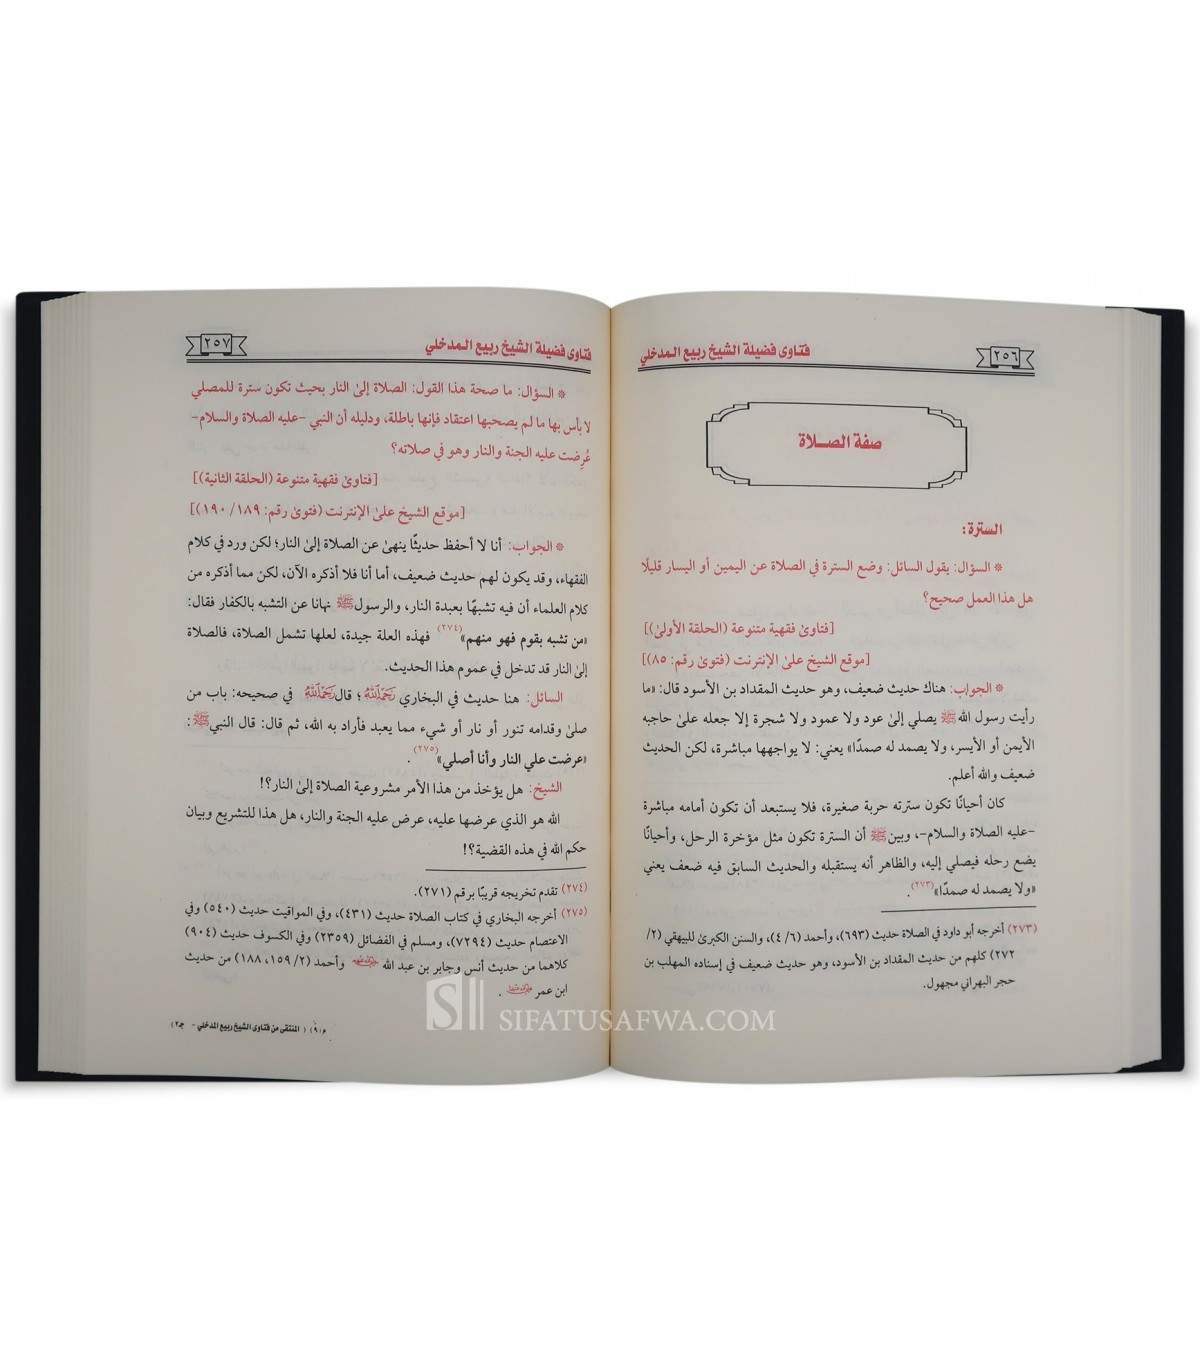 فتاوى فضيلة الشيخ ربيع المدخلي
٢٥٦
صفة الصلاة
السترة:
* السؤال: يقول السائل: وضع السترة في الصلاة عن اليمين أو اليسار قليلًا
هل هذا العمل صحيح؟
[فتاوىٰ فقهية متنوعة (الحلقة الأولىٰ)]
[موقع الشيخ علىٰ الإنترنت (فتوىٰ رقم: ٨٥)]
* الجواب: هناك حديث ضعيف، وهو حديث المقداد بن الأسود قال: «ما
رأيت رسول الله ﷺ يصلي إلىٰ عود ولا عمود ولا شجرة إلا جعله علىٰ حاجبه
الأيمن أو الأيسر، ولا يصمد له صمدًا» يعني: لا يواجهها مباشرة، لكن الحديث
ضعيف والله أعلم.
كان أحيانًا تكون سترته حربة صغيرة، فلا يستبعد أن تكون أمامه مباشرة
-عليه الصلاة والسلام-، وبين ﷺ أن السترة تكون مثل مؤخرة الرحل، وأحيانًا
يضع رحله فيصلي إليه، والظاهر أنه يستقبله والحديث السابق فيه ضعف يعني
«ولا يصمد له صمدًا»(٢٧٣).
(٢٧٣) أخرجه أبو داود في الصلاة حديث (٦٩٣)، وأحمد (٤/٦)، والسنن الكبرىٰ للبيهقي (٢/
٢٧٢) كلهم من حديث المقداد بن الأسود، وهو حديث ضعيف في إسناده المهلب بن
حجر البهراني مجهول.
فتاوى فضيلة الشيخ ربيع المدخلي
٢٥٧
* السؤال: ما صحة هذا القول: الصلاة إلىٰ النار بحيث تكون سترة للمصلي
لا بأس بها ما لم يصحبها اعتقاد فإنها باطلة، ودليله أن النبي -عليه الصلاة والسلام-
عُرِضت عليه الجنة والنار وهو في صلاته؟
[فتاوىٰ فقهية متنوعة (الحلقة الثانية)]
[موقع الشيخ علىٰ الإنترنت (فتوىٰ رقم: ١٨٩/ ١٩٠)]
* الجواب: أنا لا أحفظ حديثًا ينهىٰ عن الصلاة إلىٰ النار؛ لكن ورد في كلام
الفقهاء، وقد يكون لهم حديث ضعيف، أما أنا فلا أذكره الآن، لكن مما أذكره من
كلام العلماء أن فيه تشبهًا بعبدة النار، والرسول ﷺ نهانا عن التشبه بالكفار فقال:
«من تشبه بقوم فهو منهم»(٢٧٤) فهذه العلة جيدة، لعلها تشمل الصلاة، فالصلاة
إلىٰ النار قد تدخل في عموم هذا الحديث.
السائل: هنا حديث في البخاري رَحِمَهُ اللَّهُ؛ قال رَحِمَهُ اللَّهُ في صحيحه: باب من
صلىٰ وقدامه تنور أو نار أو شيء مما يعبد فأراد به الله، ثم قال: قال النبي ﷺ:
«عرضت علي النار وأنا أصلي»(٢٧٥).
الشيخ: هل يؤخذ من هذا الأمر مشروعية الصلاة إلىٰ النار؟!
الله هو الذي عرضها عليه، عرض عليه الجنة والنار، هل هذا للتشريع وبيان
حكم الله في هذه القضية؟!
(٢٧٤) تقدم تخريجه قريبًا برقم (٢٧١).
(٢٧٥) أخرجه البخاري في كتاب الصلاة حديث (٤٣١)، وفي المواقيت حديث (٥٤٠) وفي
الاعتصام حديث (٧٢٩٤)، ومسلم في الفضائل (٢٣٥٩) وفي الكسوف حديث (٩٠٤)
كلاهما من حديث أنس وجابر بن عبد الله وأحمد (٢/ ١٥٩، ١٨٨) من حديث
ابن عمر.
م(٩) ( المنتقى من فتاوى الشيخ ربيع المدخلي - جـ٢)
SIFATUSAFWA.COM